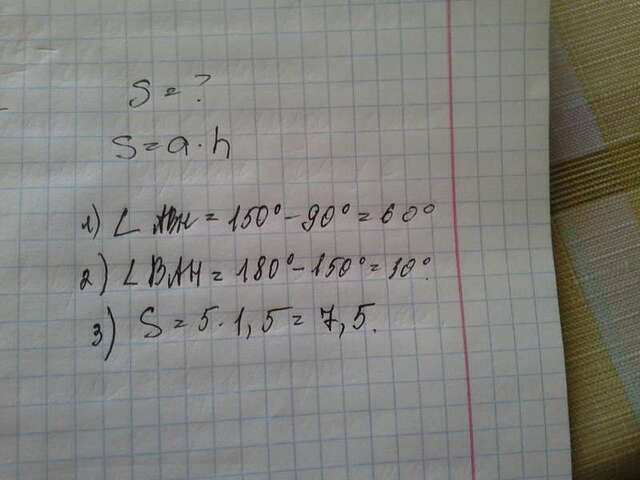 S = ?
S = a · h
1) ∠ ABH = 150° - 90° = 60°
2) ∠ BAH = 180° - 150° = 30°.
3) S = 5 · 1,5 = 7,5.